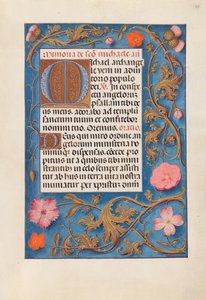 Memoria de scō michaele ar
Michael archange
le veni in adiu
torio populo
dei. In conspectu
angelorum
psallam tibi de
us meus. adorabo ad templū
sanctum tuum et confitebor
nomini tuo. Oremus. oratio.
Deus qui miro ordine an
gelorum ministeria
hominumque dispensas conce
pro
tius ut a quibus tibi mini
strantibus in celo semper assisti
tur ab his in terra vita nostra
muniatur per xpristum